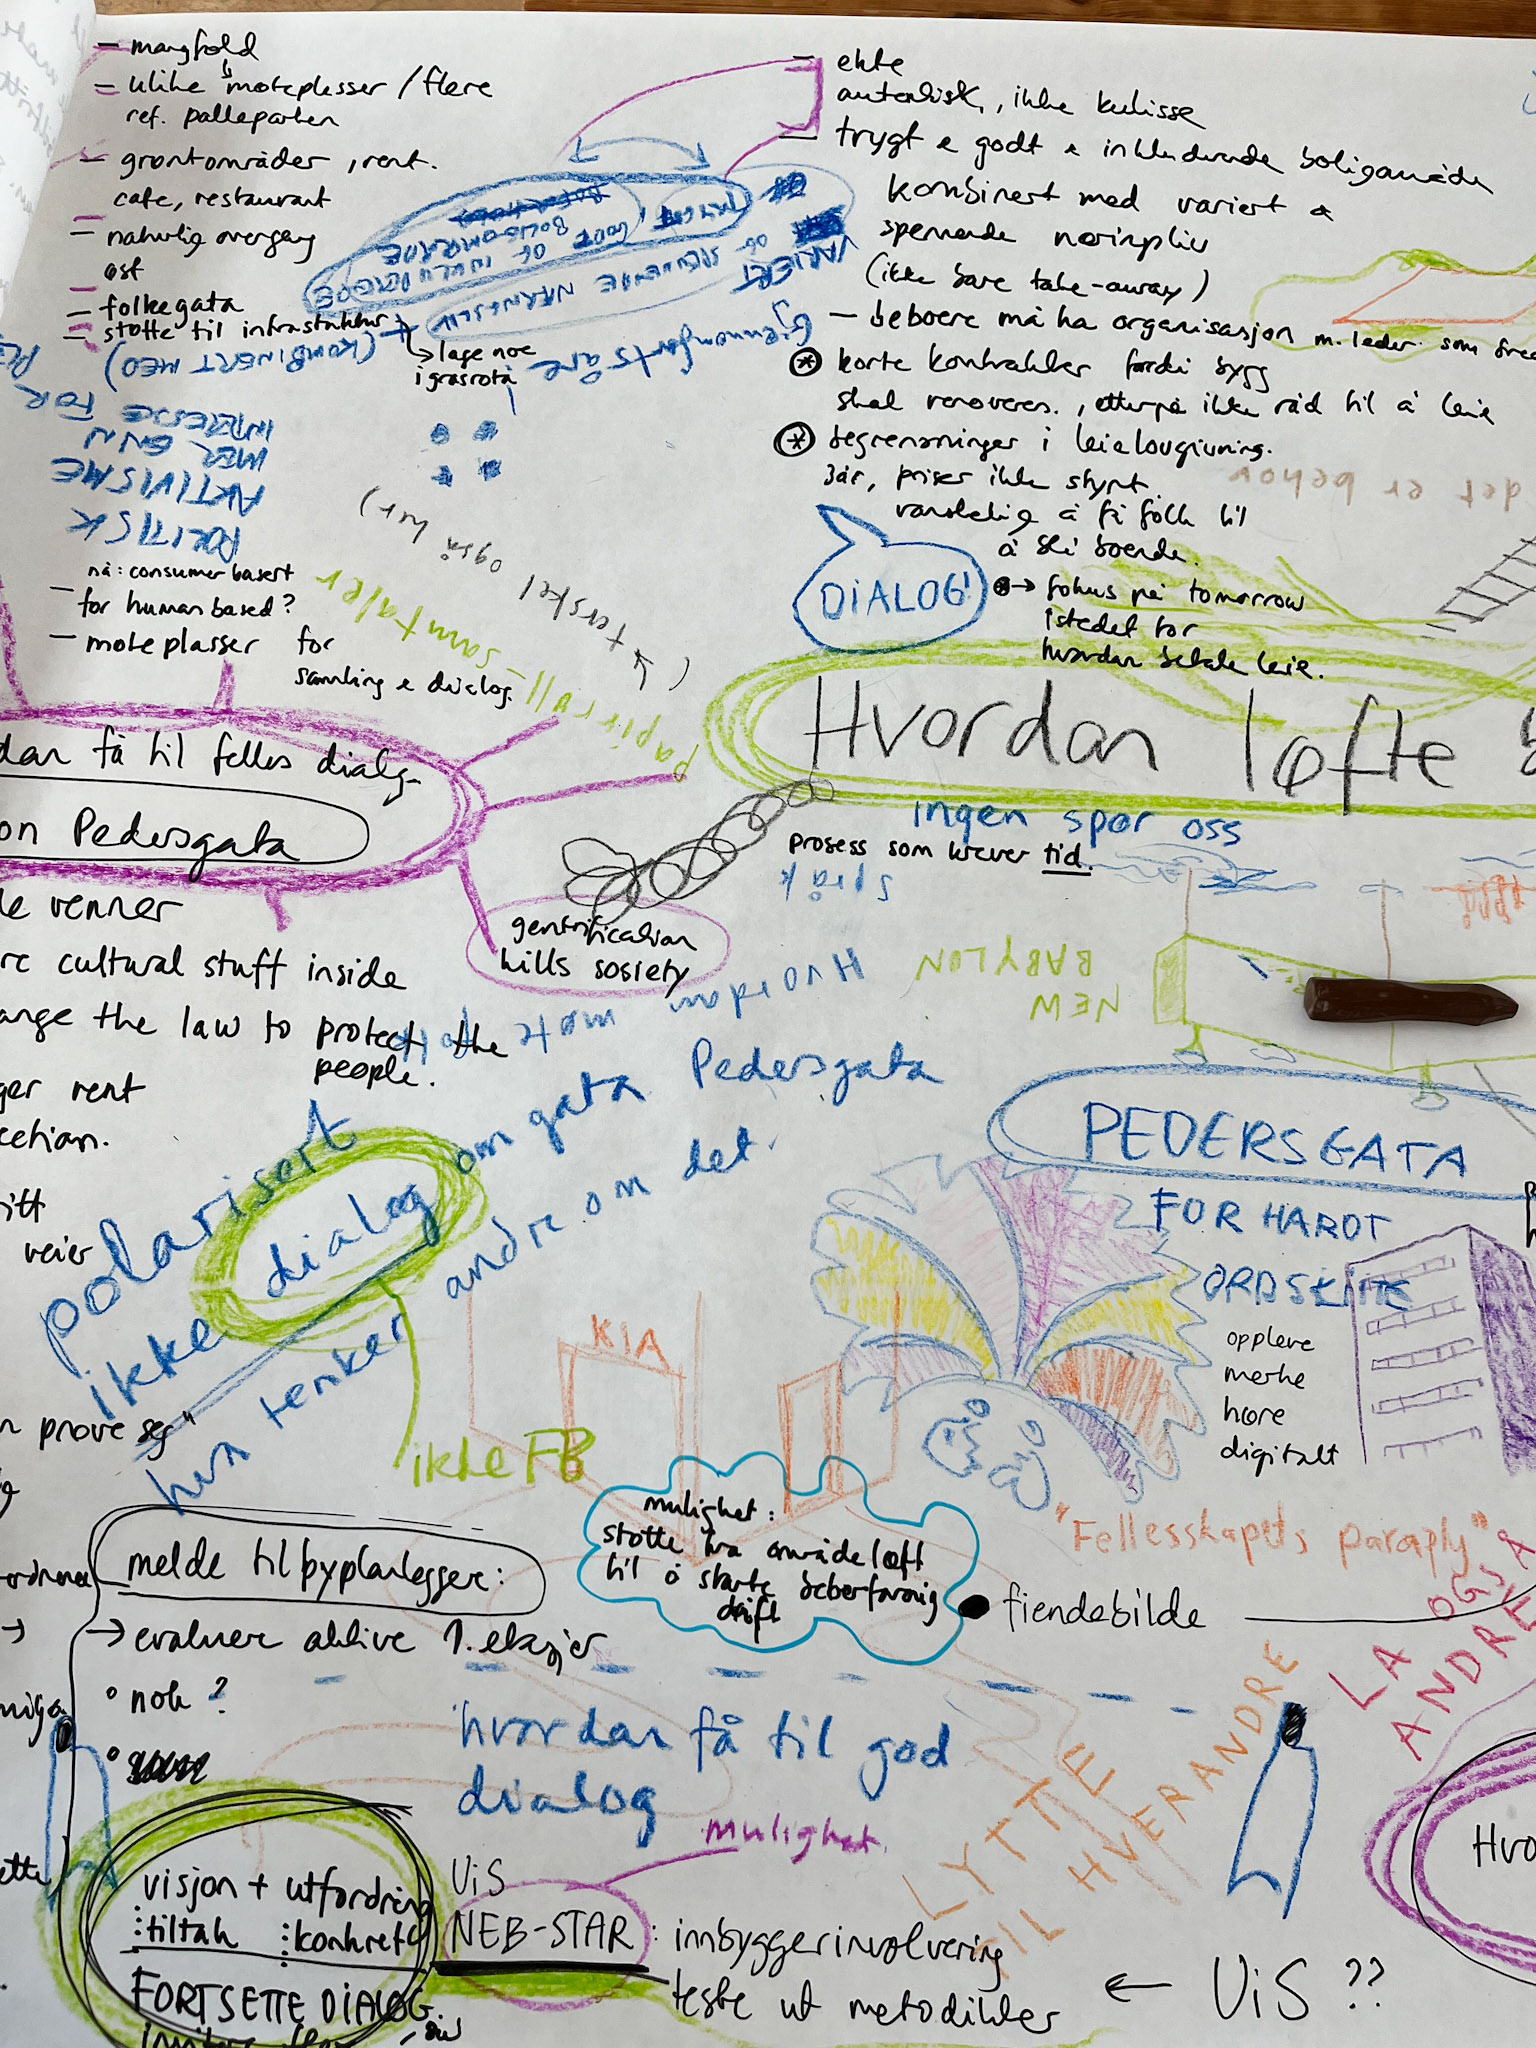 - mangfold
- ulike møteplesser / flere
ref. palleparken
- grøntområder, rent.
cafe, restaurant
- naturlig overgang
øst
- folkegata
- støtte til infrastruktur
→ lage noe
i grasrota
(KOMBINERT MED)
INTERESSE FOR
MER ENN
AKTIVISME
POLITISK
nå: consumer basert
- for human based?
- møteplasser for
samling & dialog.
- ekte
autentisk, ikke kulisse
- trygt & godt & inkluderende boligområde
kombinert med variert &
spennende næringsliv
(ikke bare take-away)
- beboere må ha organisasjon m. leder som
* korte kontrakter fordi bygg
skal renoveres., etterpå ikke råd til å leie
* begrensninger i leielovgivning.
3år, priser ikke styrt.
vanskelig å få folk til
å bli boende.
→ fokus på tomorrow
istedet for
hvordan betale leie.
VARIERT OG SPENNENDE NÆRINGSLIV
TRYGT, GODT OG INKLUDERENDE
BOLIGOMRÅDE
Gjennomfartsåre
(↓ terskel også her)
papirrull-samtaler
det er behov
DIALOG!
Hvordan løfte
ingen spør oss
prosess som krever tid.
språk
dan få til felles dialog
on Pedersgata
gentrification
kills sosiety
le venner
re cultural stuff inside
ange the law to protect the
people.
ger rent
itt
veier
Hvordan møte folk
NEW
BABYLON
polarisert
ikke dialog om gata Pedersgata
hva tenker andre om det.
ikke FB
PEDERSGATA
FOR HARDT
ORDSKIFTE
oppleve
merke
høre
digitalt
KIA
n prøve seg"
"Fellesskapets paraply"
mulighet:
støtte fra områdeløft
til å starte beboerforening
drift
fiendebilde
melde til byplanlegger:
→ evaluer aktive 1. etasjer
° nok?
hvordan få til god
dialog
mulighet.
LYTTE
TIL HVERANDRE
LA
OGSÅ
ANDRE
visjon + utfordring
: tiltak : konkrete
FORTSETTE DIALOG.
UiS
NEB-STAR : innbyggerinvolvering
teste ut metodikker
← UiS ??
Hvo